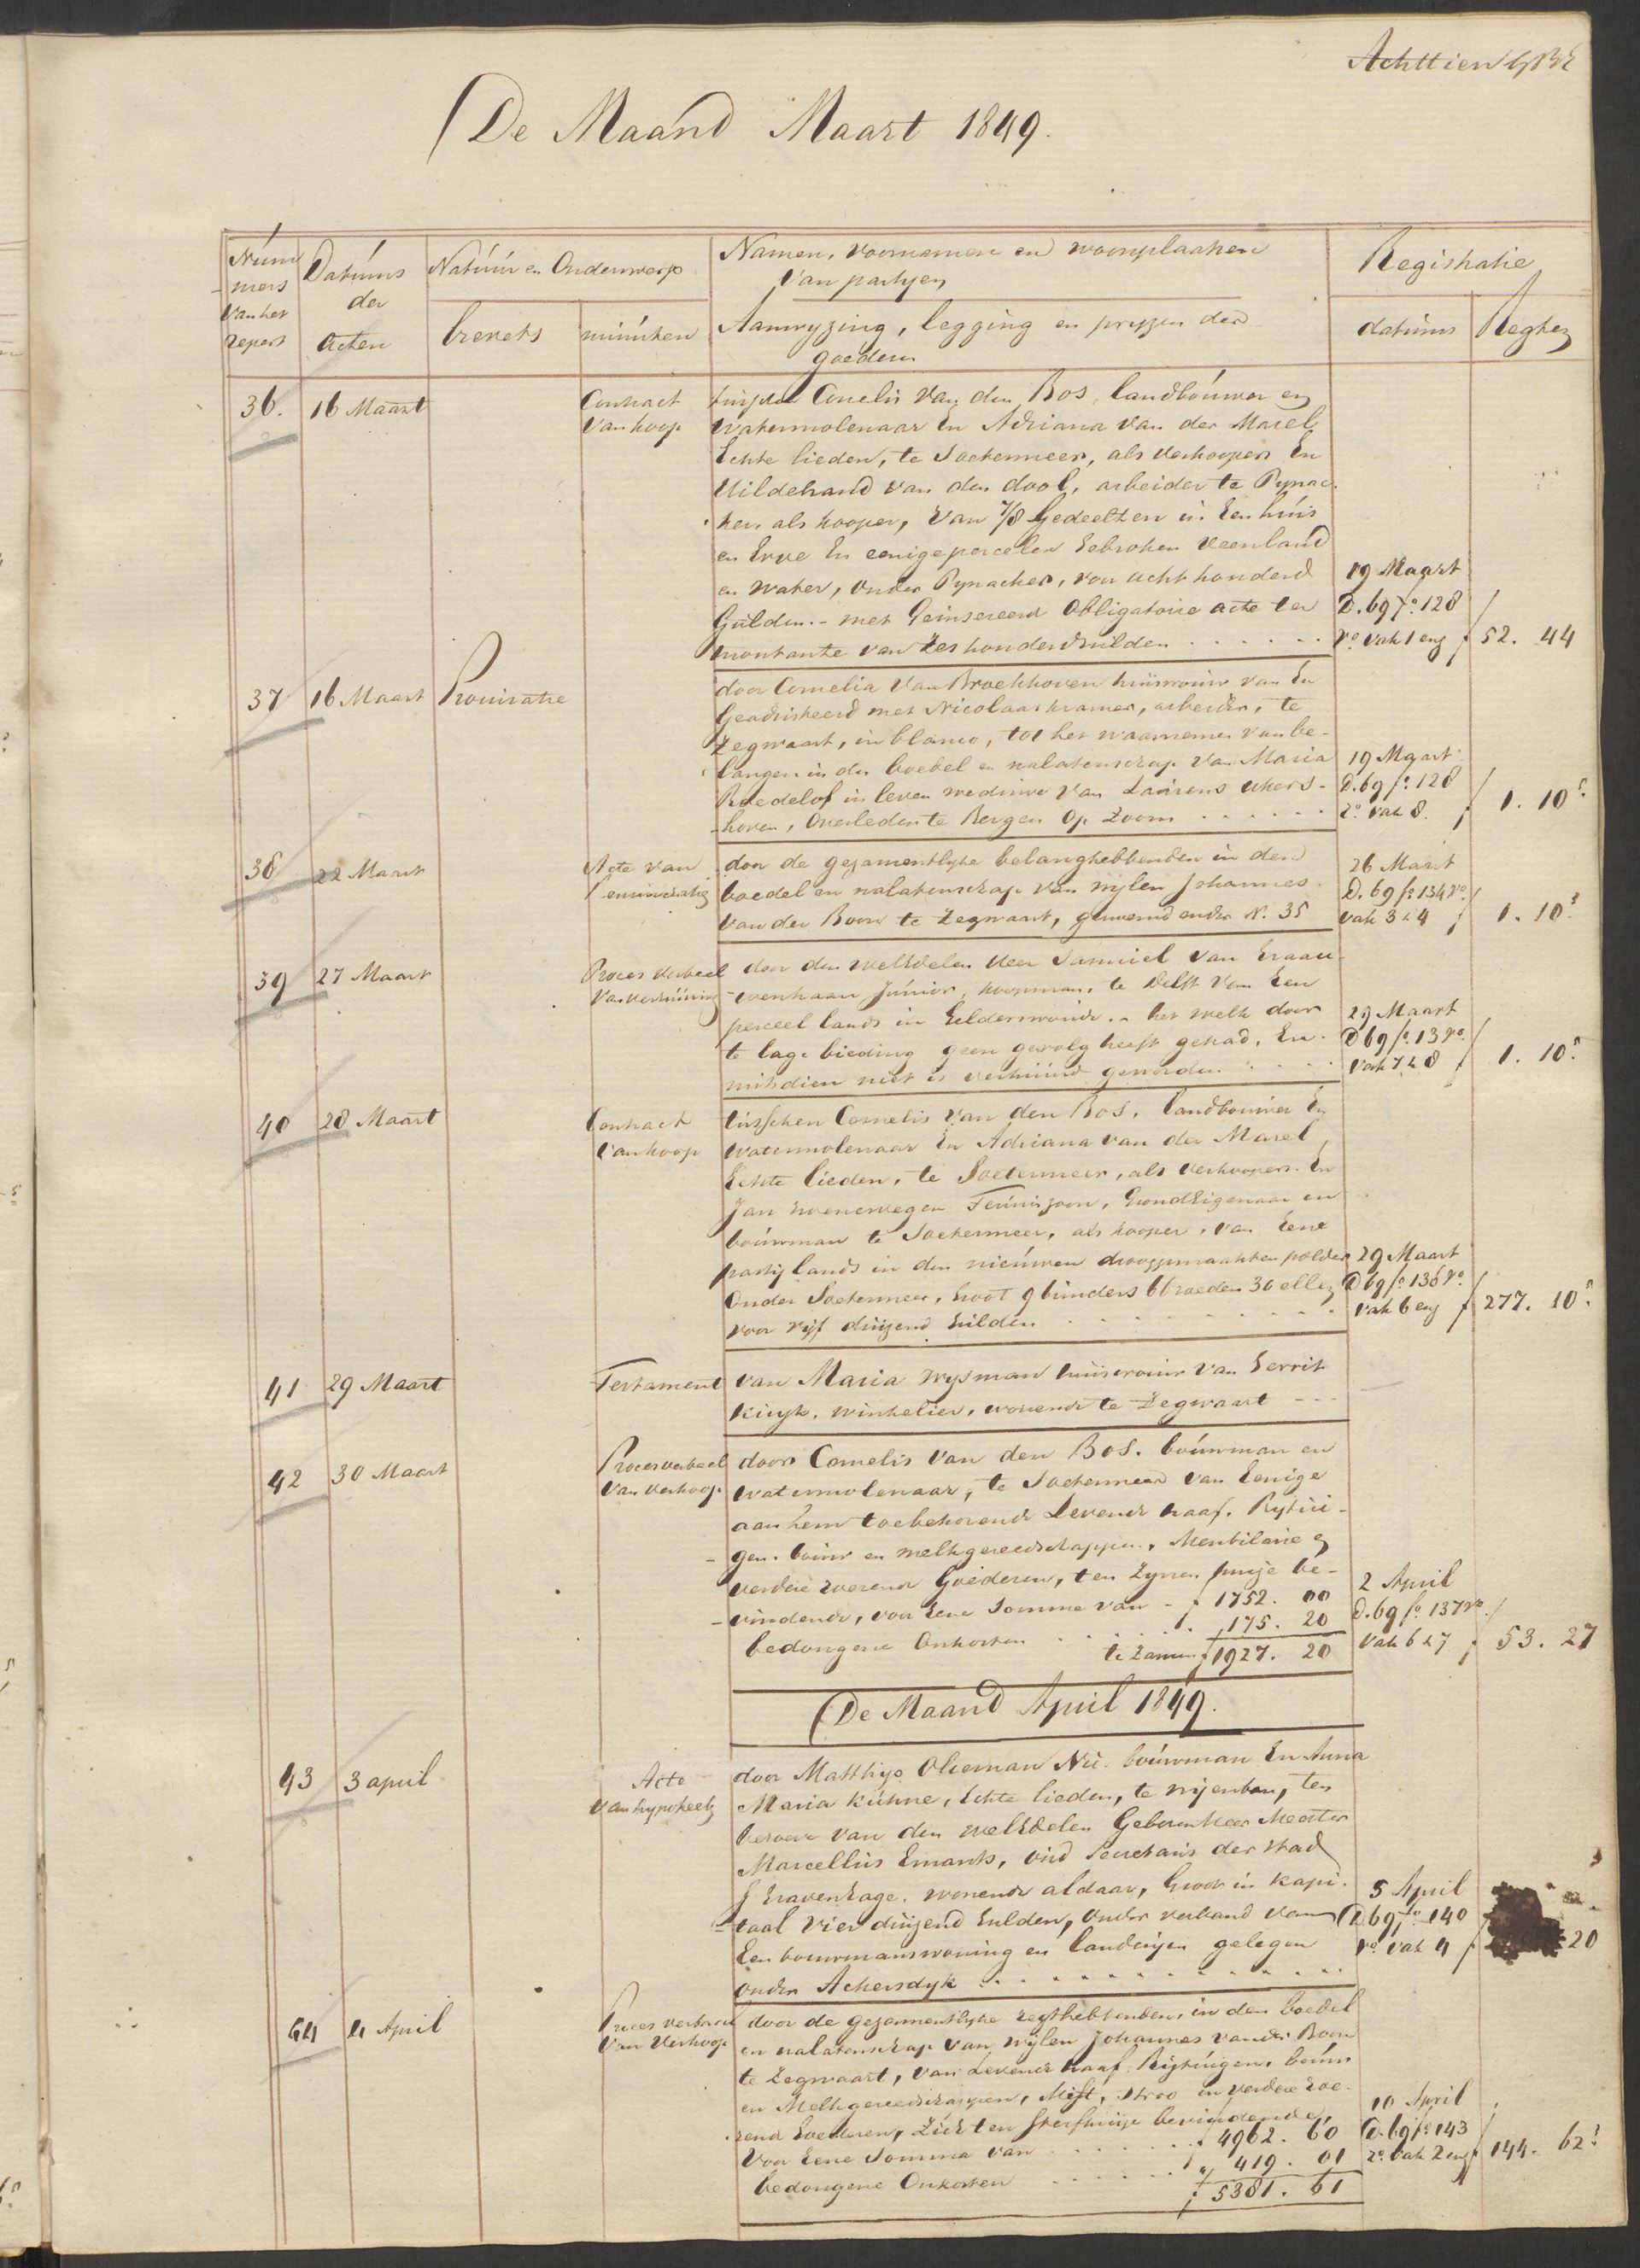 Achttien
De Maand Maart 1849.
Num
mers
van het
repert
Datums
der
acten
Natuur en Onderwerp
brevets
minuten
Namen, voornamen en woonplaatsen
van partyen
Aanwyzing, legging en pryzen der
goederen
Registratie
datums
Regten
36. 16 Maart
Contract
van koop
tusschen Cornelis van den Bos, landbouwer en
watermolenaar En Adriana van der Marel
Echte lieden, te Soetermeer, als verkoopers En
Hildebrand van den dool, arbeider te Pynac-
ker als kooper, van 7/8 Gedeelten in Een huis
en Erve En eenige perceelen Gebroken veenland
en water, onder Pynacker, voor acht honderd
Gulden. - met Geinsereerd Obligatoire acte ter
montante van Zes honderd Gulden
19 Maart
D. 69 fo. 128
ro vak 1 en f 52. 44
37 16 Maart Procuratie
door Cornelia van Broekhoven huisvrouw van En
Geadsisteerd met Nicolaas Kramer, arbeider, te
Zegwaart, in blanco, tot het waarnemen van be-
langen in den boedel en nalatenschap van Maria
Roedelof in leven weduwe van Laurens Akers-
hoven, Overleden te Bergen Op Zoom
19 Maart
D. 69 fo. 128
ro vak 8. f 1. 10 5
38 22 Maart
Acte van
door de gezamentlyke belanghebbenden in den
boedel en nalatenschap van wylen Johannes
van der Boon te Zegwaart, genoemd onder N. 35
26 Maart
D. 69 fo 134 vo
vak 3 & 4 f 1. 10 5
39 27 Maart
Proces verbaal
van verhuuring
door den welEdelen Heer Samuel van
Junior, koopman, te Delft van Een
perceel lands in Gelderswoude. - het welk door
te lage bieding geen gevolg heeft gehad, En
mitsdien niet is verhuurd geworden
29 Maart
D 69 fo 13 vo
vak 7 & 8 f 1. 10 5
40 28 Maart
Contract
van koop
tusschen Cornelis van den Bos, landbouwer En
watermolenaar En Adriana van der Marel,
Echte lieden, te Soetermeer, als verkoopers En
Jan Groenewegen Teuniszoon, GrondEigenaar en
bouwman te Soetermeer, als kooper, van Eene
party lands in den nieuwen drooggemaakten polder
Onder Soetermeer, Groot 9 bunders 6 roeden 36 ellen
voor vyf duizend Gulden
29 Maart
D 69 fo 136 vo
vak 6 en f 277. 10 5
41 29 Maart
Testament
van Maria Wysman huisvrouw van Gerrit
Kuyk, winkelier, wonende te Zegwaart
42 30 Maart
Proces verbaal
van verkoop
door Cornelis van den Bos, bouwman en
watermolenaar, te Soetermeer van Eenige
aan hem toebehorende Levende haaf, Rytui-
gen, bouw en melkgereedschappen, Meubilaire en
verdere roerend Goederen, ten Zynen huize be-
vindende, voor Eene Somme van - f 1752. 00
bedongene Onkosten 175. 20
te Zamen f 1927. 20
2 April
D. 69 fo 137 vo
vak 6 & 7 f 53. 27
De Maand April 1849.
43 3 april
Acte
van hypotheek
door Matthys Olieman Nic. bouwman En Anna
Maria Kühne, Echte lieden, te nyenban, ten
behoeve van den welEdelen Geboren Heer Meester
Marcellus Emants, oud Secretaris der Stad
S Gravenhage, wonende aldaar, Groot in Kapi-
taal vier duizend Gulden, onder verband van
Een bouwmanswoning en landeryen gelegen
onder Ackersdyk
5 April
D 69 fo 140
ro vak 4 f 20
44 4 April
Proces verbaal
van Verkoop
door de gezamentlyke regthebbenden in den boedel
en nalatenschap van wylen Johannes vander Boon
te Zegwaart, van Levende haaf, Rytuigen, bouw
en Melkgereedschappen, Mest, Stroo en verdere roe-
rend Goederen, Zich ten Sterfhuize bevindende,
Voor Eene Somma van f 4962. 60
bedongene Onkosten " 419. 01
f 5381. 61
10 April
D. 69 fo 143
ro vak 2 en f 144. 62 5